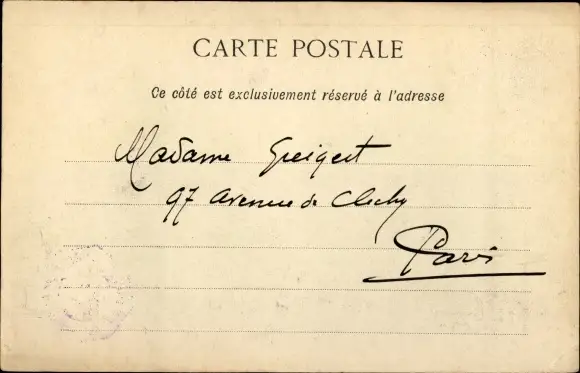 CARTE POSTALE
Ce côté est exclusivement réservé à l'adresse
Madame Greigert
97 avenue de Clichy
Paris